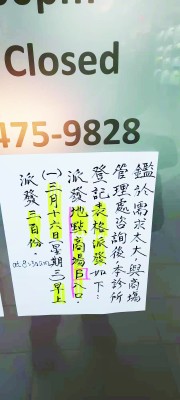 Closed
475-9828
鑑於需求太大，與商場
管理處咨詢後，本診所
登記表格派發如下：
派發地點：商場B入口。
(一)三月十六日(星期三)早上
at 8:30am
派發三百份。